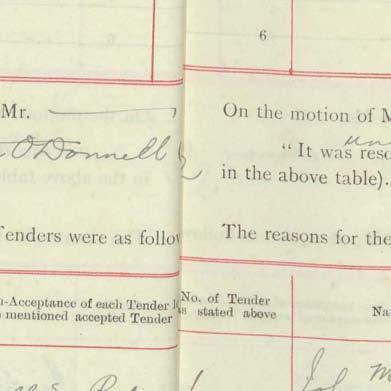 6
Mr.
O'Donnell
Tenders were as follow
n-Acceptance of each Tender
mentioned accepted Tender
On the motion of M
un
" It was reso
in the above table).
The reasons for the
No. of Tender
as stated above
Na